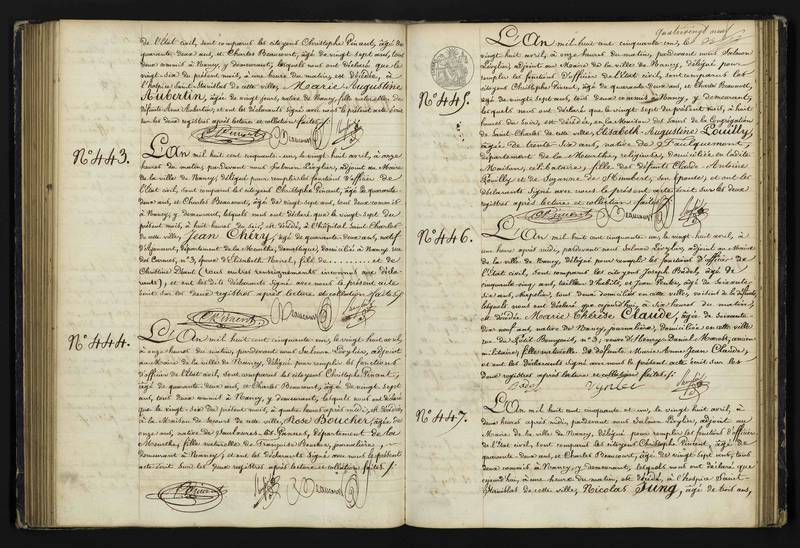 de l'Etat civil, sont comparus les citoyens Christophe Pinant, âgé de
quarante deux ans, et Charles Beaucourt, âgé de vingt sept ans, tous
deux commis à Nancy, y demeurant, lesquels nous ont déclaré que le
vingt six du présent mois, à une heure du matin, est décédée, à
l'hospice Saint Stanislas de cette ville, Marie Augustine
Auberlin, âgée de vingt jours, native de Nancy, fille naturelle de
défunte Anne Auberlin, et ont les déclarants signé avec nous le présent acte écrit
sur les deux registres après lecture et collation faites./.
N° 443.
L'An mil huit cent cinquante un, le vingt huit avril, à onze
heures du matin, pardevant nous Salmon Lévylier, adjoint au Maire
de la ville de Nancy, délégué pour remplir les fonctions d'officier de
l'Etat civil, sont comparus les citoyens Christophe Pinant, âgé de quarante
deux ans, et Charles Beaucourt, âgé de vingt sept ans, tous deux commis
à Nancy, y demeurant, lesquels nous ont déclaré que le vingt sept du
présent mois, à huit heures du soir, est décédé, à l'hôpital Saint Charles
de cette ville, Jean Chéry, âgé de quarante deux ans, natif
département de la Meurthe, domestique, domicilié à Nancy rue
des n° 3, époux d'Elisabeth fils de ......... et de
Christine (tous autres renseignements inconnus aux décla-
rants), et ont les dits déclarants signé avec nous le présent acte
écrit sur les deux registres après lecture et collation faites./.
N° 444.
L'An mil huit cent cinquante un, le vingt huit avril,
à onze heures du matin, pardevant nous Salmon Lévylier, adjoint
au Maire de la ville de Nancy, délégué pour remplir les fonctions
d'officier de l'Etat civil, sont comparus les citoyens Christophe Pinant,
âgé de quarante deux ans, et Charles Beaucourt, âgé de vingt sept
ans, tous deux commis à Nancy, y demeurant, lesquels nous ont déclaré
que le vingt six du présent mois, à quatre heures après midi, est décédée,
à la Maison de Secours de cette ville, Rose Boucher, âgée de
onze ans, native de département de la
Meurthe, fille naturelle de Françoise Boucher, journalière,
demeurant à Nancy; et ont les déclarants signé avec nous le présent
acte écrit sur les deux registres après lecture et collation faites./.
Quatrevingt neuf
N° 445.
L'An mil huit cent cinquante un, le
vingt huit avril, à onze heures du matin, pardevant nous Salmon
Lévylier, adjoint au Maire de la ville de Nancy, délégué pour
remplir les fonctions d'officier de l'Etat civil, sont comparus les
citoyens Christophe Pinant, âgé de quarante deux ans, et Charles Beaucourt,
âgé de vingt sept ans, tous deux commis à Nancy, y demeurant,
lesquels nous ont déclaré que le vingt sept du présent mois, à huit
heures du soir, est décédée, en la Maison des Sœurs de la Congrégation
de Saint Charles de cette ville, Elisabeth Augustine Pouilly,
âgée de trente six ans, native de Faulquemont,
département de la Moselle, religieuse, domiciliée en ladite
Maison, célibataire, fille des défunts Claude Antoine
Pouilly et de Suzanne de Humbert, son épouse; et ont les
déclarants signé avec nous le présent acte écrit sur les deux
registres après lecture et collation faites./.
N° 446.
L'An mil huit cent cinquante un, le vingt huit avril, à
une heure après midi, pardevant nous Salmon Lévylier, adjoint au Maire
de la ville de Nancy, délégué pour remplir les fonctions d'officier de
l'Etat civil, sont comparus les citoyens Joseph Bédel, âgé de
cinquante cinq ans, tailleur d'habits, et Jean âgé de soixante
six ans, tous deux domiciliés en cette ville, voisins de la défunte,
lesquels nous ont déclaré que cejourd'hui, à six heures du matin,
est décédée Marie Thérèse Claude, âgée de soixante
dix neuf ans, native de Nancy, journalière, domiciliée en cette ville
rue du Petit Bourgeois, n° 3, veuve d'Henry Daniel ancien
militaire, fille naturelle de défunte Marie Anne Jean Claude;
et ont les déclarants signé avec nous le présent acte écrit sur les
deux registres après lecture et collation faites./.
N° 447.
L'An mil huit cent cinquante et un, le vingt huit avril, à
deux heures après midi, pardevant nous Salmon Lévylier, adjoint au
Maire de la ville de Nancy, délégué pour remplir les fonctions d'officier
de l'Etat civil, sont comparus les citoyens Christophe Pinant, âgé de
quarante deux ans, et Charles Beaucourt, âgé de vingt sept ans, tous
deux commis à Nancy, y demeurant, lesquels nous ont déclaré que
cejourd'hui, à une heure du matin, est décédé, à l'hospice Saint
Stanislas de cette ville, Nicolas Jung, âgé de trois ans,